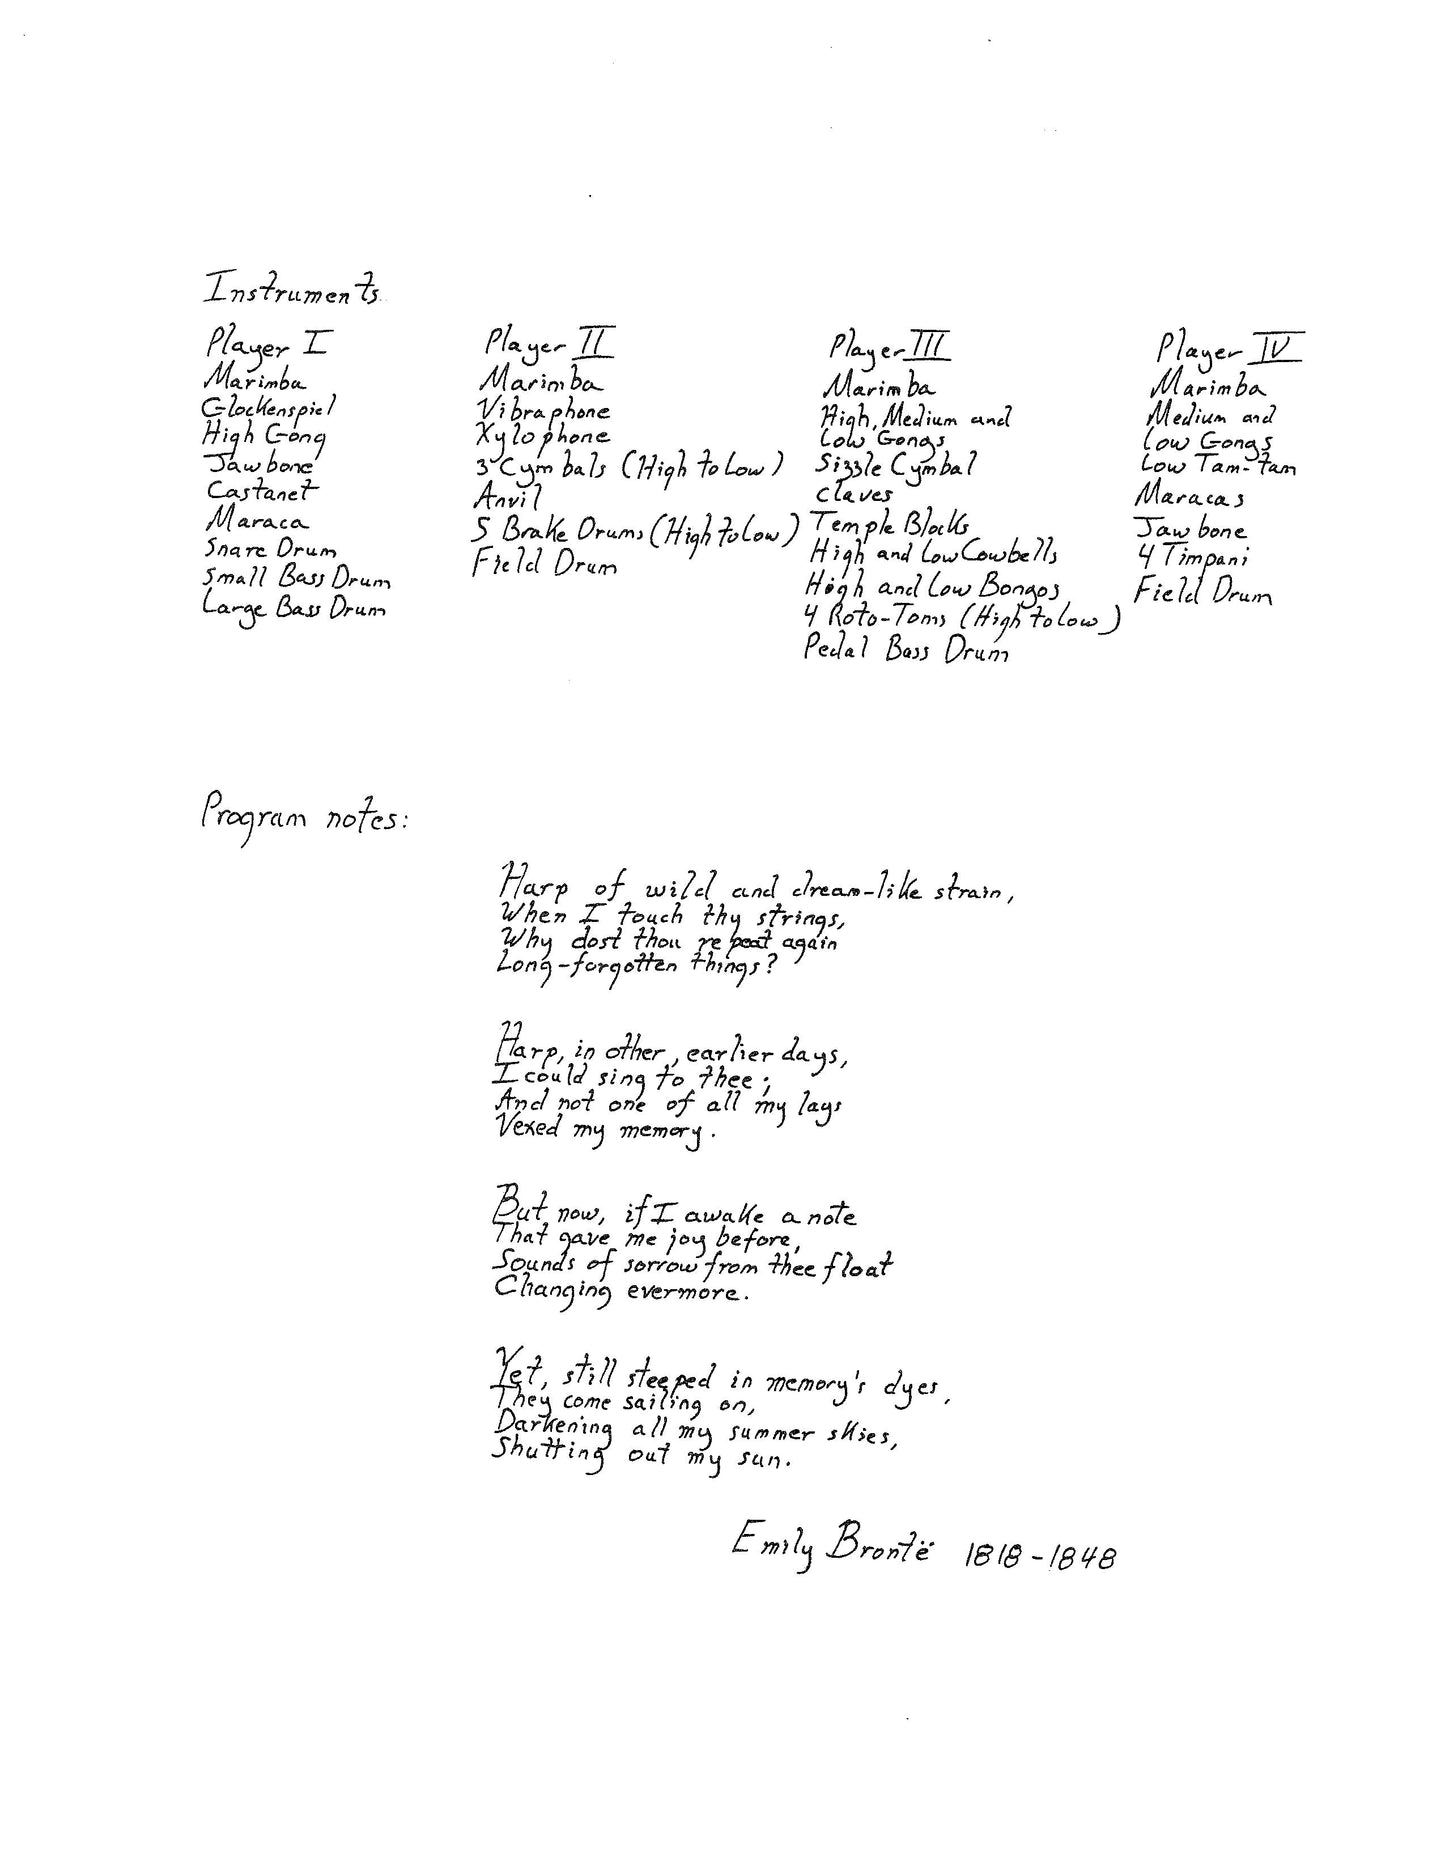 Instruments
Player I
Marimba
Glockenspiel
High Gong
Jawbone
Castanet
Maraca
Snare Drum
Small Bass Drum
Large Bass Drum
Player II
Marimba
Vibraphone
Xylophone
3 Cymbals (High to Low)
Anvil
5 Brake Drums (High to Low)
Field Drum
Player III
Marimba
High, Medium and
Low Gongs
Sizzle Cymbal
Claves
Temple Blocks
High and Low Cowbells
High and Low Bongos
4 Roto-Toms (High to Low)
Pedal Bass Drum
Player IV
Marimba
Medium and
Low Gongs
Low Tam-tam
Maracas
Jawbone
4 Timpani
Field Drum
Program notes:
Harp of wild and dream-like strain,
When I touch thy strings,
Why dost thou repeat again
Long-forgotten things?
Harp, in other, earlier days,
I could sing to thee;
And not one of all my lays
Vexed my memory.
But now, if I awake a note
That gave me joy before,
Sounds of sorrow from thee float
Changing evermore.
Yet, still steeped in memory's dyes,
They come sailing on,
Darkening all my summer skies,
Shutting out my sun.
Emily Brontë 1818-1848